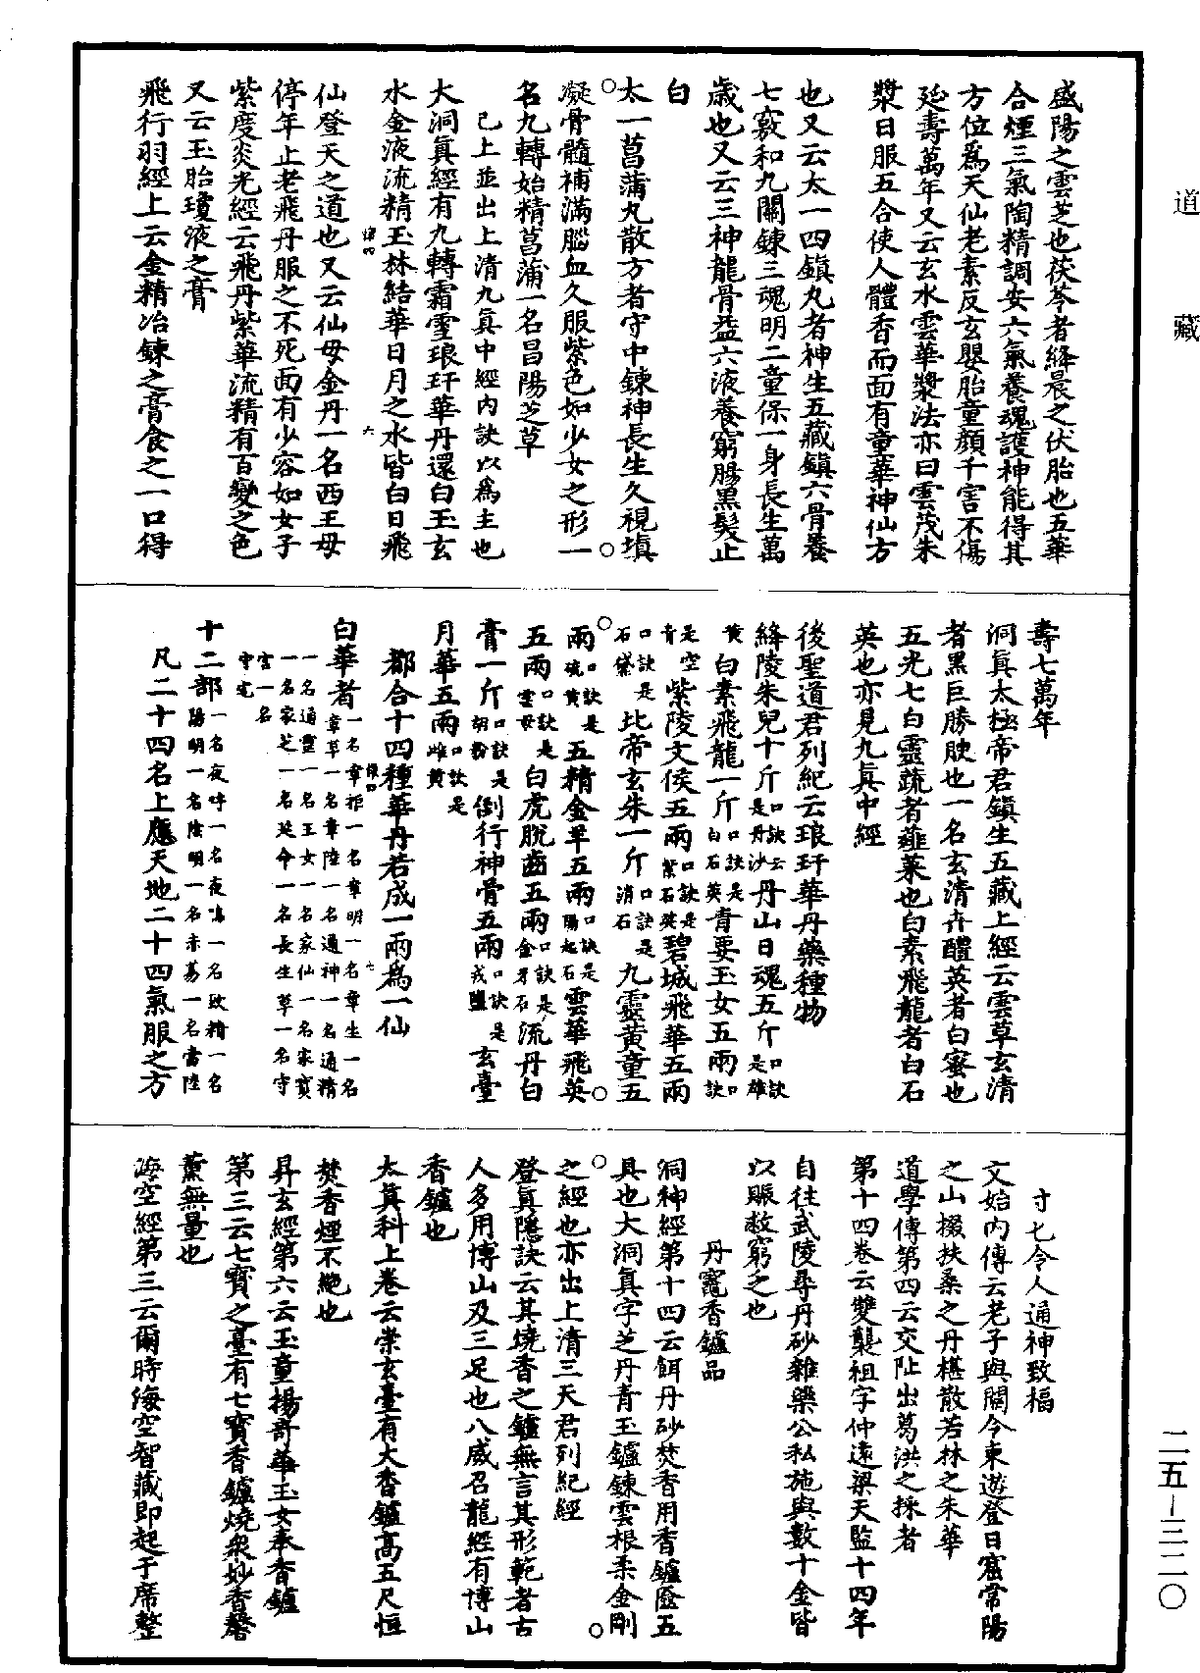 道藏
盛陽之雲芝也茯苓者絳晨之伏胎也五華
合煙三氣陶精調安六氣養魂護神能得其
方位爲天仙老素反玄嬰胎童顏千害不傷
延壽萬年又云玄水雲華漿法亦曰雲茂朱
漿日服五合使人體香而面有童華神仙方
也又云太一四鎮丸者神生五藏鎮六骨養
七竅和九關鍊三魂明二童保一身長生萬
歲也又云三神龍骨益六液養窮腸黑髮止
白
太一菖蒲丸散方者守中鍊神長生久視塡
凝骨髓補滿腦血久服紫色如少女之形一
名九轉始精菖蒲一名昌陽芝草
已上並出上清九眞中經內訣以爲主也
大洞眞經有九轉霜雪琅玕華丹還白玉玄
水金液流精玉林結華日月之水皆白日飛
仙登天之道也又云仙母金丹一名西王母
停年止老飛丹服之不死面有少容如女子
紫度炎光經云飛丹紫華流精有百變之色
又云玉胎瓊液之膏
飛行羽經上云金精冶鍊之膏食之一口得
壽七萬年
洞眞太極帝君鎮生五藏上經云雲草玄清
者黑巨勝腴也一名玄清卉醴英者白蜜也
五光七白靈蔬者薤菜也白素飛龍者白石
英也亦見九眞中經
後聖道君列紀云琅玕華丹藥種物
絳陵朱兒十斤口訣云是丹沙丹山日魂五斤口訣是雄
黃白素飛龍一斤口訣是白石英青要玉女五兩口訣
是空青紫陵文侯五兩口訣是紫石英碧城飛華五兩
口訣是石黛北帝玄朱一斤口訣是消石九靈黃童五
兩口訣是硫黃五精金羊五兩口訣是陽起石雲華飛英
五兩口訣是雲母白虎脫齒五兩口訣是金牙石流丹白
膏一斤口訣是胡粉倒行神骨五兩口訣是戎鹽玄臺
月華五兩口訣是雌黃
都合十四種華丹若成一兩爲一仙
白華者一名章柜一名章明一名章生一名
章草一名章陸一名通神一名通精
一名通靈一名王女一名家仙一名家寶
一名家芝一名延命一名長生草一名守
宮一名
守宅
十二部一名夜呼一名夜鳴一名致精一名
陽明一名陰明一名赤葛一名當陸
凡二十四名上應天地二十四氣服之方
寸匕令人通神致福
文始內傳云老子與關令東遊登日窟常陽
之山掇扶桑之丹椹散若林之朱華
道學傳第四云交阯出葛洪之採者
第十四卷云雙襲祖字仲遠梁天監十四年
自往武陵尋丹砂雜藥公私施與數十金皆
以賑救窮乏也
丹竈香鑪品
洞神經第十四云餌丹砂焚香用香鑪匳五
具也大洞眞字芝丹青玉鑪鍊雲根柔金剛
之經也亦出上清三天君列紀經
登眞隱訣云其燒香之鑪無言其形範者古
人多用博山及三足也八威召龍經有博山
香鑪也
太眞科上卷云崇玄臺有大香鑪高五尺恒
焚香煙不絶也
昇玄經第六云玉童揚哥華玉女奉香鑪
第三云七寶之臺有七寶香鑪燒衆妙香馨
薰無量也
海空經第三云爾時海空智藏即起于席整
二五-三二〇